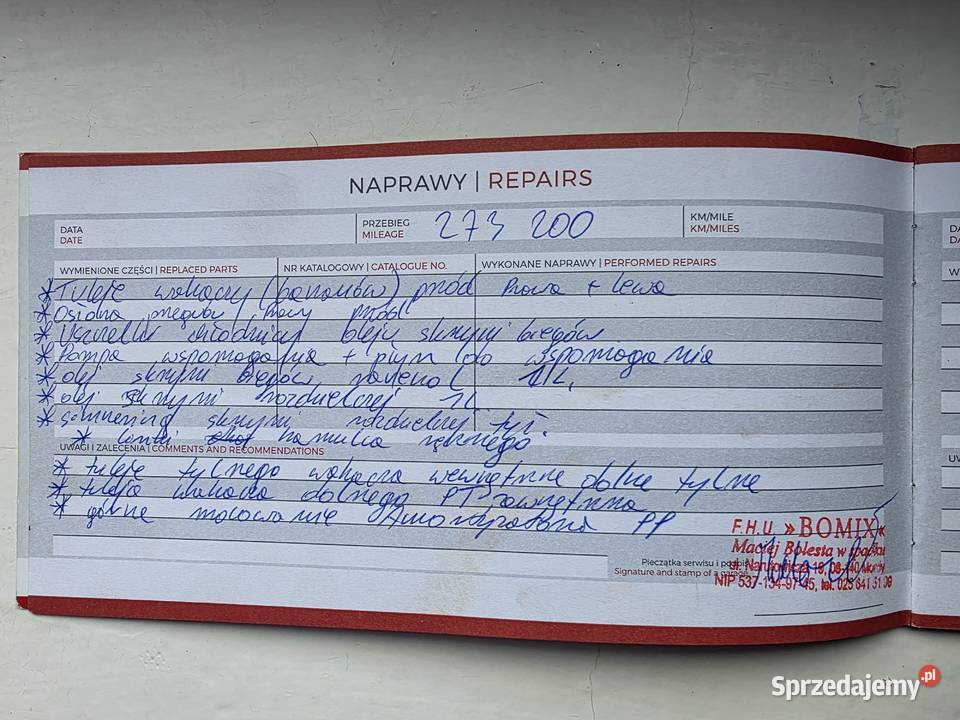 NAPRAWY | REPAIRS
DATA
DATE
PRZEBIEG
MILEAGE
273 200
KM/MILE
KM/MILES
WYMIENIONE CZĘŚCI | REPLACED PARTS
NR KATALOGOWY | CATALOGUE NO.
WYKONANE NAPRAWY | PERFORMED REPAIRS
* Tuleje wahaczy (bananów) przód Prawa + Lewa
* Osłona przegubu przód
* Uszczelki chłodnicy oleju skrzyni biegów
* Pompa wspomagania + płyn do wspomagania
* olej skrzyni biegów ravenol 11L,
* olej skrzyni rozdzielczej 1L
* simmering skrzyni rozdzielczej tył.
* linki hamulca ręcznego.
UWAGI I ZALECENIA | COMMENTS AND RECOMMENDATIONS
* tuleje tylnego wahacza wewnętrzne dolne tylne
* tuleja wahacza dolnego PT zewnętrzna
* górne mocowanie Amortyzatora PP
F.H.U. »BOMIX«
Maciej Bolesta w spadku
Pieczątka serwisu i podpis
Signature and stamp of a garage
ul. Narutowicza 18, 08-140 Mordy
NIP 537-134-97-45, tel. 025 641 51 39
Sprzedajemy.pl